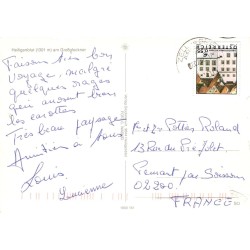 Heiligenblut 1301 m am Großglockner
Faisons très bon
voyage, malgré
quelques orages
qui auront bien
les carottes
Très beau paysage
Amitiés à tous
Louis
Lucienne
ÖSTERREICH
Pottes Roland
13 Rue du
par Soissons
02200
FRANCE